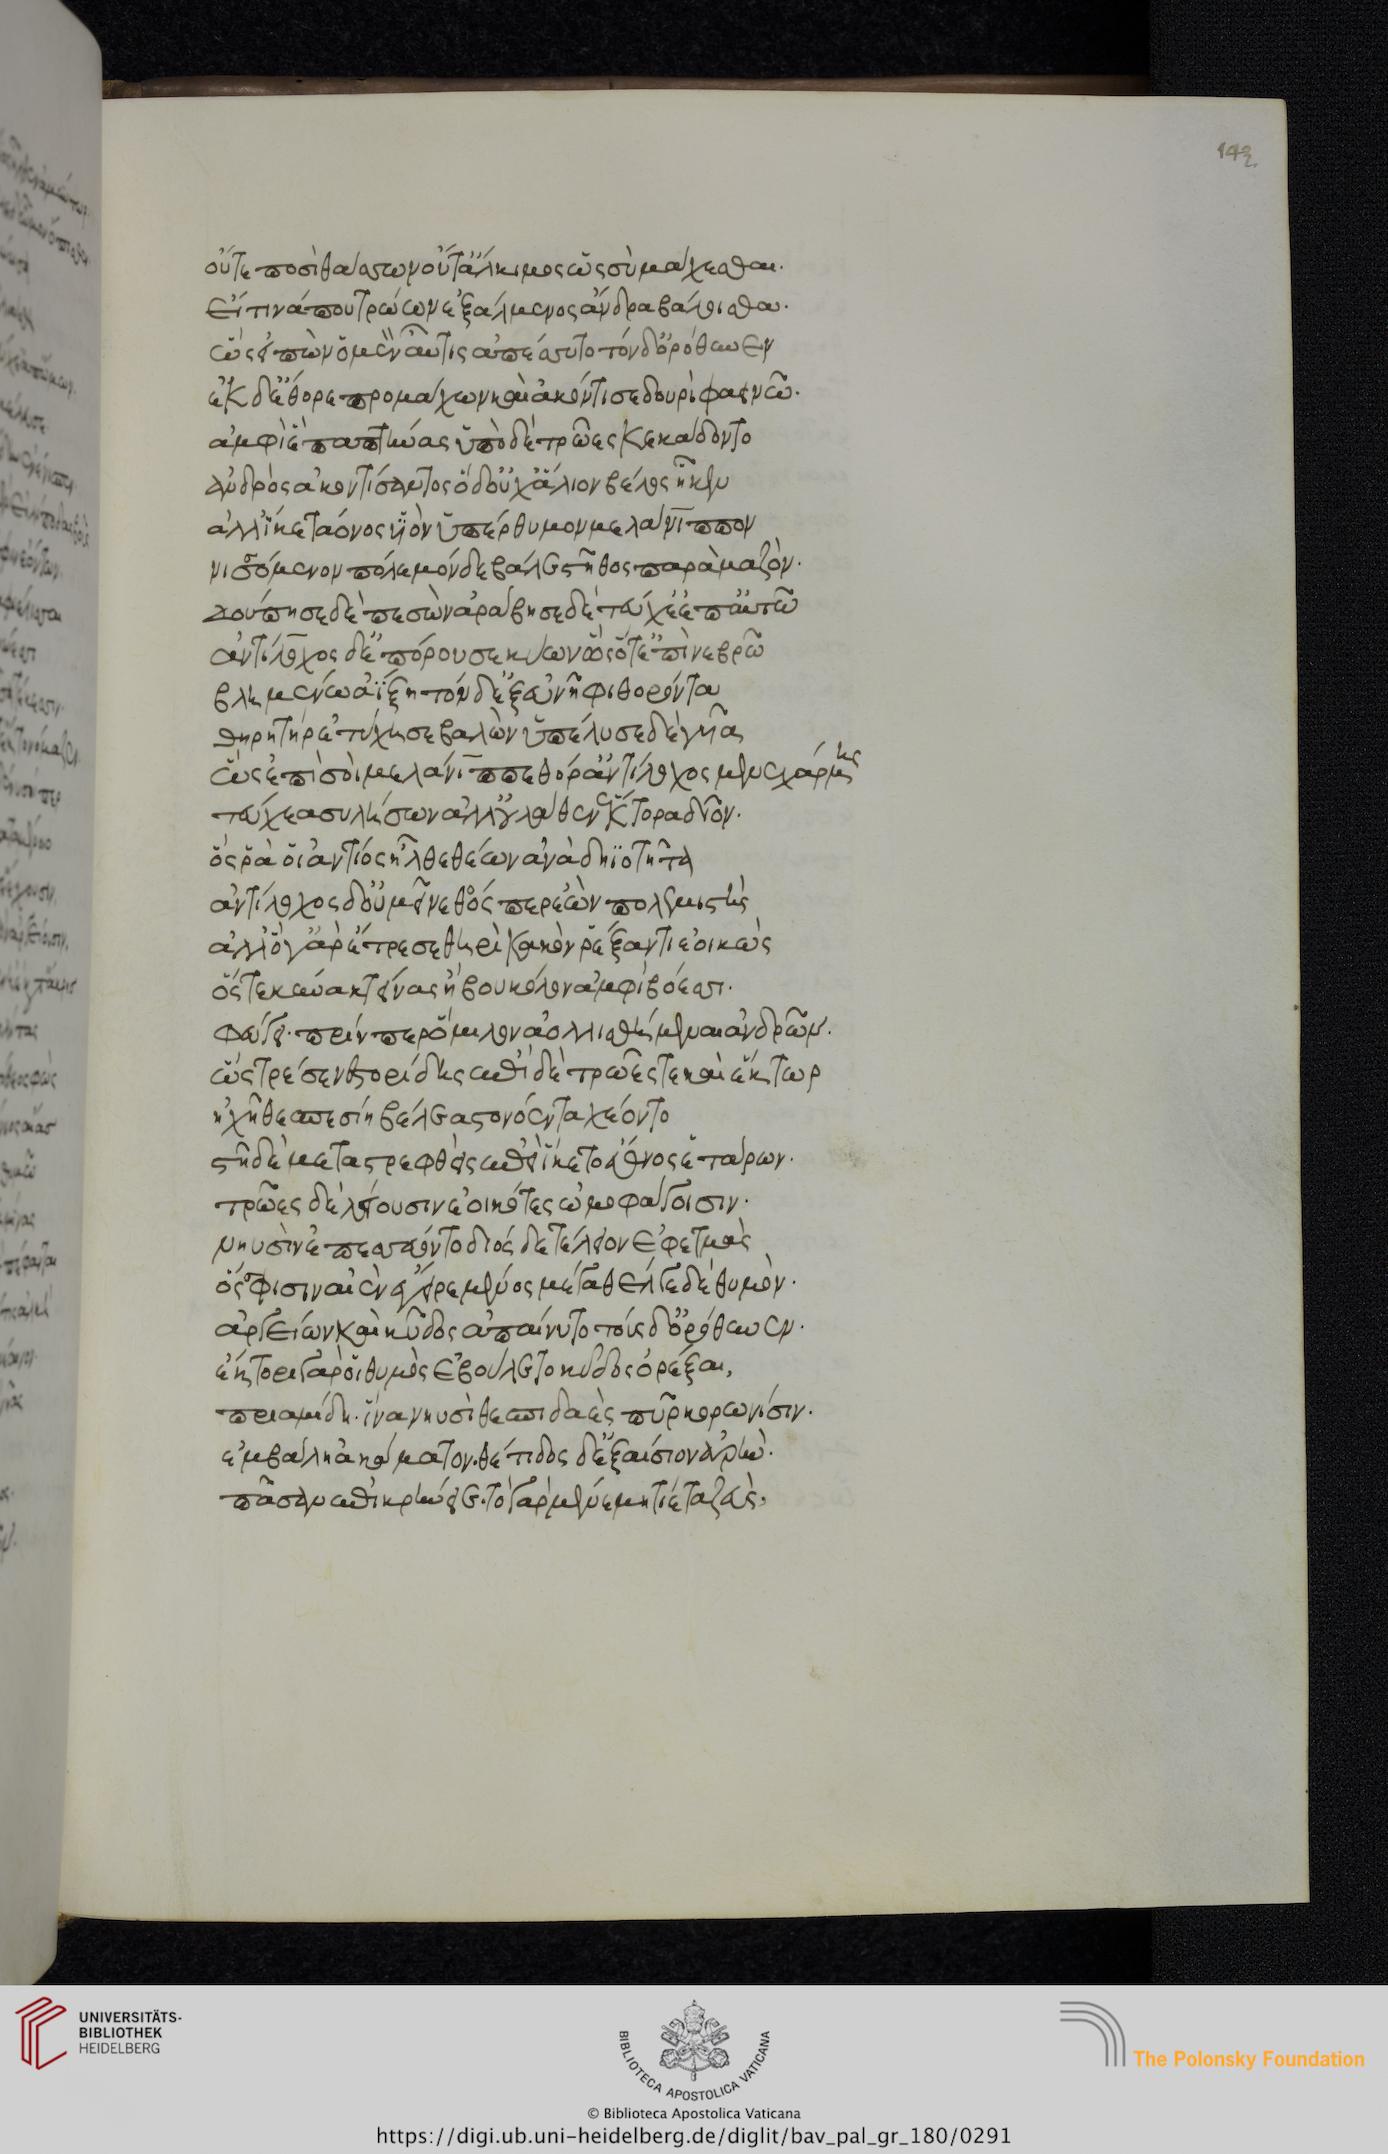 143
οὔτε ποσὶ θάσσων οὔτ' ἄλκιμος ὡς σὺ μάχεσθαι·
εἴ τινά που τρώων ἐξάλμενος ἄνδρα βάλοισθα·
ὣς εἰπὼν ὁ μὲν αὖτις ἀπέσσυτο τὸν δ' ὀρόθυνεν
ἐκ δ' ἔθορε προμάχων καὶ ἀκόντισε δουρὶ φαεινῶ·
ἀμφὶ ἓ παπτήνας ὑπὸ δὲ τρῶες κεκάδοντο
ἀνδρὸς ἀκοντίσαντος ὁ δ' οὐχ ἅλιον βέλος ἧκεν
ἀλλ' ἱκετάονος υἱὸν ὑπέρθυμον μελάνιππον
νισσόμενον πόλεμόνδε βάλε στῆθος παρὰ μαζὸν·
δούπησε δὲ πεσὼν ἀράβησε δὲ τεύχε' ἐπ' αὐτῶ
ἀντίλοχος δ' ἐπόρουσε κύων ὣς ὅτ' ἐπὶ νεβρῶ
βλημένω ἀΐξῃ τόν δ' ἐξ εὐνῆφι θορόντα
θηρητὴρ ἐτύχησε βαλὼν ὑπέλυσε δὲ γυῖα
ὣς ἐπὶ σοὶ μελάνιππε θόρ' ἀντίλοχος μενεχάρμης
τεύχεα συλήσων ἀλλ' οὐ λάθεν ἕκτορα δῖον·
ὅς ῥά οἱ ἀντίος ἦλθε θέων ἀνὰ δηϊοτῆτα
ἀντίλοχος δ' οὐ μεῖνε θοός περ ἐὼν πολεμιστὴς
ἀλλ' ὅ γ' ἄρ' ἔτρεσε θηρὶ κακὸν ῥέξαντι ἐοικὼς
ὅς τε κύνα κτείνας ἢ βουκόλον ἀμφὶ βόεσσι·
φεύγει· πρίν περ ὅμιλον ἀολλισθήμεναι ἀνδρῶν·
ὣς τρέσε νεστορίδης ἐπὶ δὲ τρῶές τε καὶ ἕκτωρ
ἠχῆ θεσπεσίη βέλεα στονόεντα χέοντο
στῆ δὲ μεταστρεφθεὶς ἐπεὶ ἵκετο ἔθνος ἑταίρων·
τρῶες δὲ λείουσιν ἐοικότες ὠμοφάγοισιν·
νηυσὶν ἐπεσσεύοντο διὸς δὲ τέλειον ἐφετμὰς
ὅ σφισιν αἰὲν ἔγειρε μένος μέγα θέλγε δὲ θυμὸν·
ἀργείων καὶ κῦδος ἀπαίνυτο τοὺς δ' ὀρόθυνεν·
ἕκτορι γάρ οἱ θυμὸς ἐβούλετο κῦδος ὀρέξαι,
πριαμίδη· ἵνα νηυσὶ θεσπιδαὲς πῦρ κορωνίσιν·
ἐμβάλη ἀκάματον· θέτιδος δ' ἐξαίσιον ἀρὴν·
πᾶσαν ἐπικρήνειε· τὸ γὰρ μένε μητίετα ζεὺς,
UNIVERSITÄTS-
BIBLIOTHEK
HEIDELBERG
BIBLIOTECA APOSTOLICA VATICANA
The Polonsky Foundation
© Biblioteca Apostolica Vaticana
https://digi.ub.uni-heidelberg.de/diglit/bav_pal_gr_180/0291